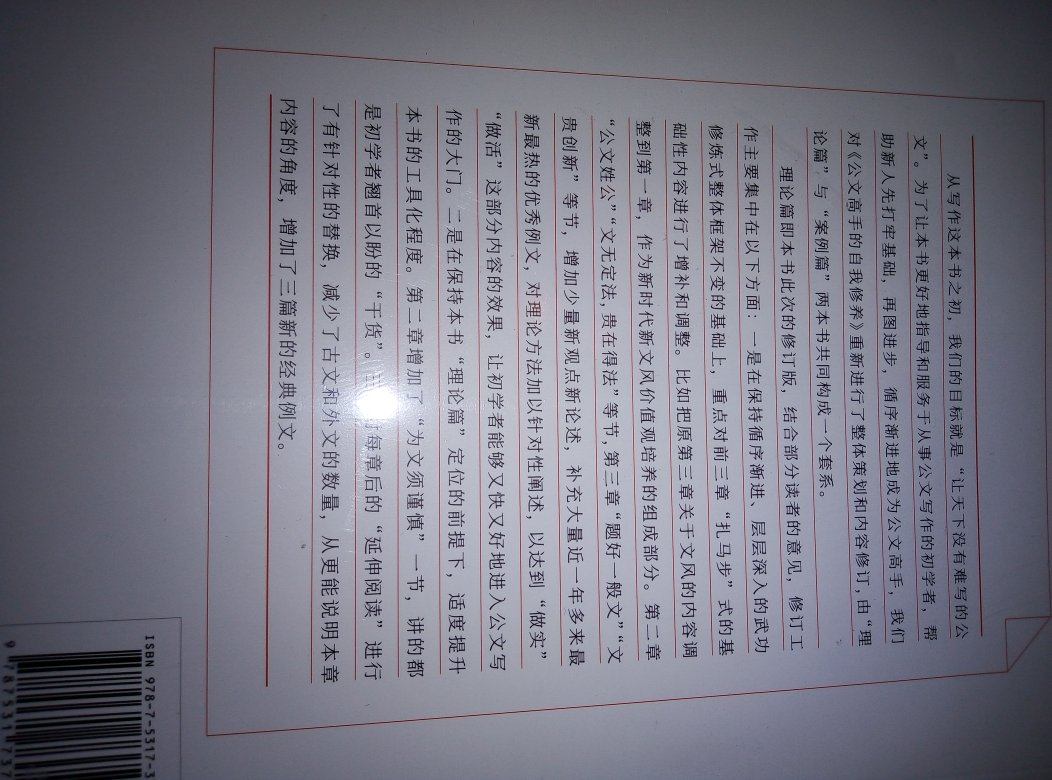 从写作这本书之初，我们的目标就是“让天下没有难写的公
文”。为了让本书更好地指导和服务于从事公文写作的初学者，帮
助新人先打牢基础，再图进步，循序渐进地成为公文高手，我们
对《公文高手的自我修养》重新进行了整体策划和内容修订，由“理
论篇”与“案例篇”两本书共同构成一个套系。
理论篇即本书此次的修订版，结合部分读者的意见，修订工
作主要集中在以下方面：一是在保持循序渐进、层层深入的武功
修炼式整体框架不变的基础上，重点对前三章“扎马步”式的基
础性内容进行了增补和调整。比如把原第三章关于文风的内容调
整到第一章，作为新时代新文风价值观培养的组成部分。第二章
“公文姓公”“文无定法，贵在得法”等节，第三章“题好一般文”“文
贵创新”等节，增加少量新观点新论述，补充大量近一年多来最
新最热的优秀例文，对理论方法加以针对性阐述，以达到“做实”
“做活”这部分内容的效果，让初学者能够又快又好地进入公文写
作的大门。二是在保持本书“理论篇”定位的前提下，适度提升
本书的工具化程度。第二章增加了“为文须谨慎”一节，讲的都
是初学者翘首以盼的“干货”。每章后的“延伸阅读”进行
了有针对性的替换，减少了古文和外文的数量，从更能说明本章
内容的角度，增加了三篇新的经典例文。
ISBN 978-7-5317-3
9 787531 737